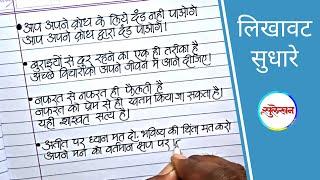 • आप अपने क्रोध के लिये दंड नही पाओगे
आप अपने क्रोध द्वारा दंड पाओगे।
• बुराइयों से दूर रहने का एक ही तरीका है
अच्छे विचारोंको अपने जीवन में आने दीजिए।
• नफरत से नफरत ही फैलती है
नफरत को प्रेम से ही खतम किया जा सकता है।
यही शाश्वत सत्य है।
• अतीत पर ध्यान मत दो, भविष्य की चिंता मत करो
अपने मन को वर्तमान क्षण पर
लिखावट
सुधारे
सुलेखन